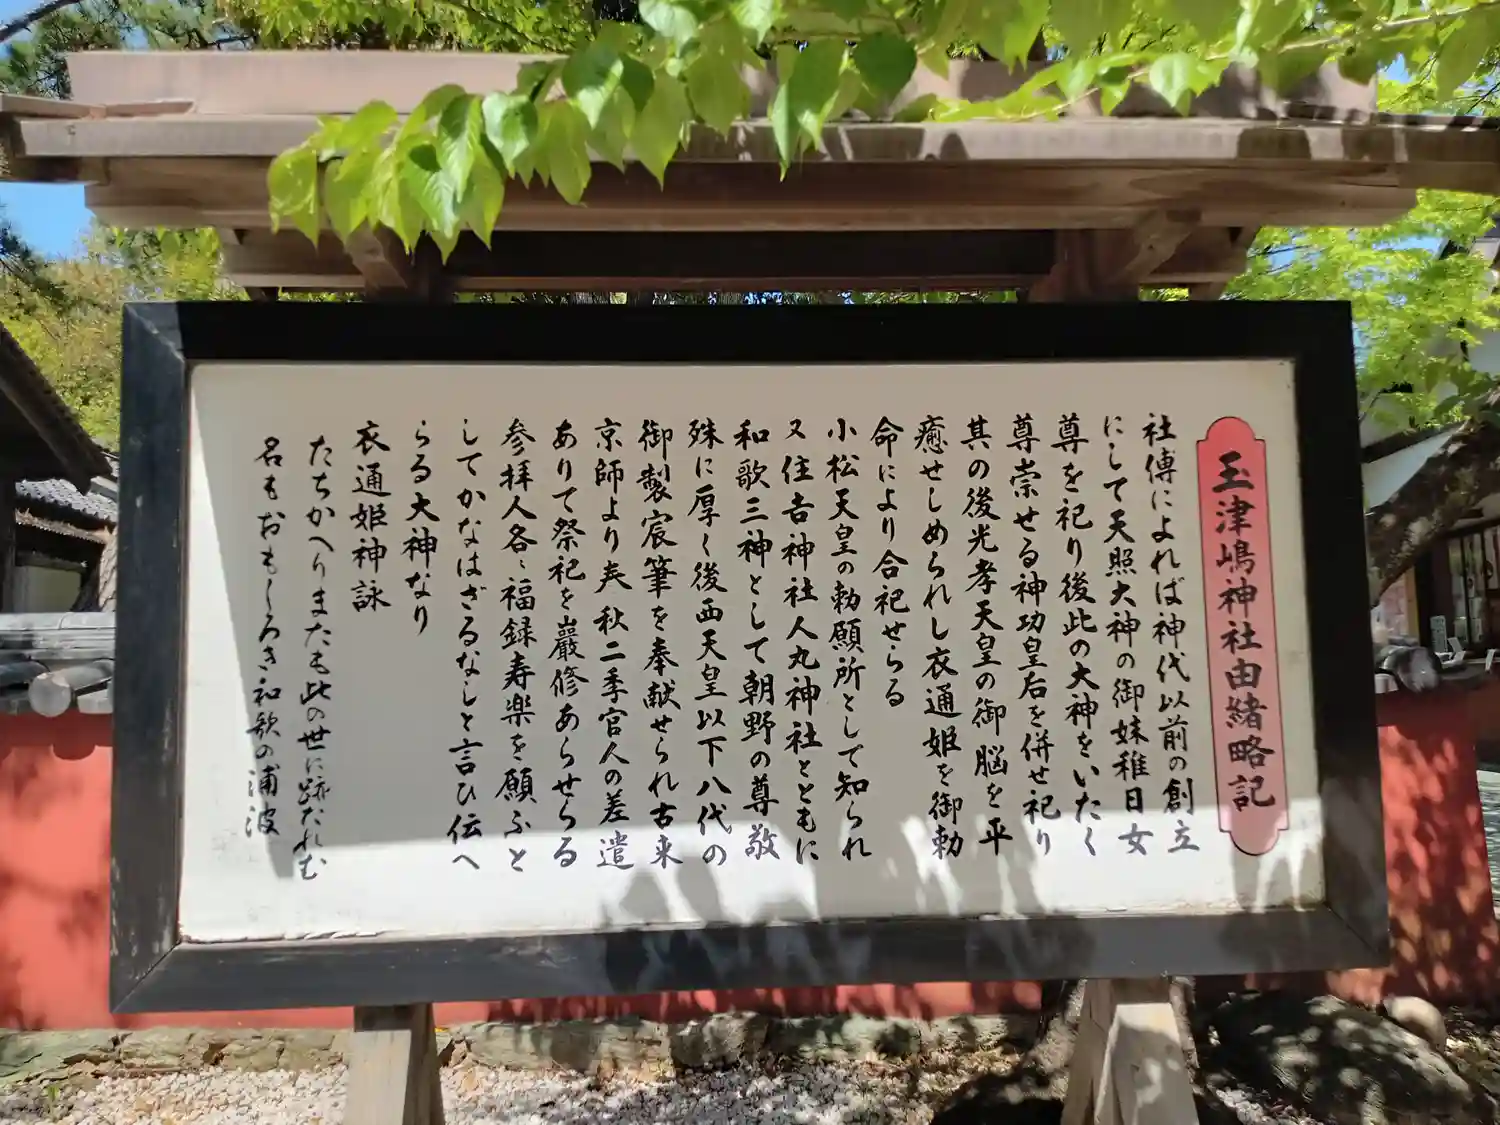 玉津嶋神社由緒略記
社傳によれば神代以前の創立
にして天照大神の御妹稚日女
尊を祀り後此の大神をいたく
尊崇せる神功皇后を併せ祀り
其の後光孝天皇の御脳を平
癒せしめられし衣通姫を御勅
命により合祀せらる
小松天皇の勅願所として知られ
又住吉神社人丸神社とともに
和歌三神として朝野の尊敬
殊に厚く後西天皇以下八代の
御製宸筆を奉献せられ古来
京師より春秋二季官人の差遣
ありて祭祀を巌修あらせらる
参拝人各〻福録寿楽を願ふと
してかなはざるなしと言ひ伝へ
らる大神なり
衣通姫神詠
たちかへりまたも此の世に跡たれむ
名もおもしろき和歌の浦波